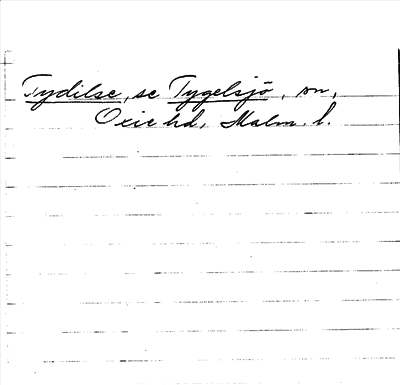 Tydilse, se Tygelsjö, sn,
Oxie hd, Malm. l.